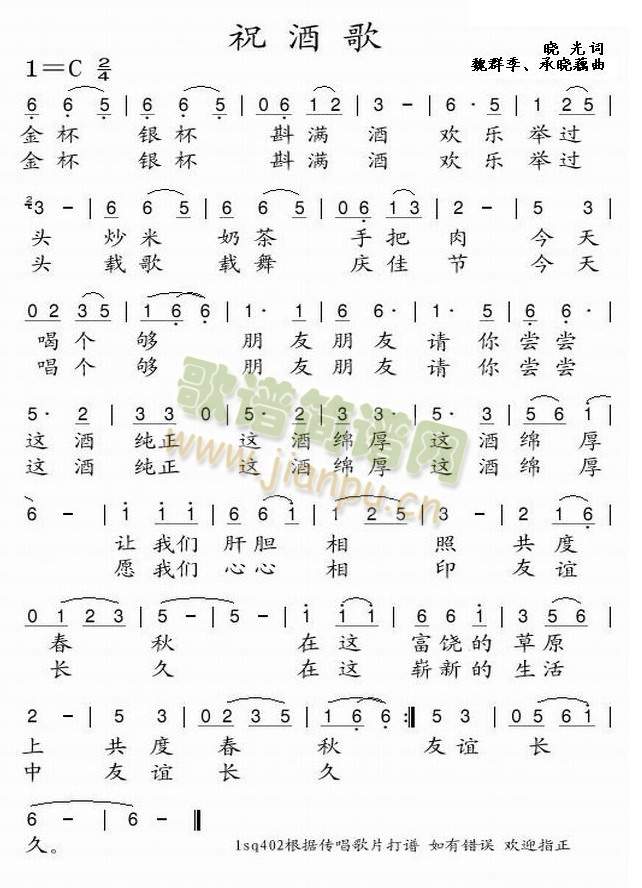 祝酒歌
晓光词
1=C 2/4
魏群季、承晓藕曲
6 6 5 | 6 6 5 | 0 6 1 2 | 3 - | 6 6 · 5 | 1 2 5 |
金杯 银杯 斟满酒 欢乐举过
金杯 银杯 斟满酒 欢乐举过
2/4 3 - | 6 6 5 | 6 6 5 | 0 6 1 3 | 2 - | 5 3 |
头 炒米 奶茶 手把肉 今天
头 载歌 载舞 庆佳节 今天
0 2 3 5 | 1 6 6 | 1 · 1 | 6 6 · | 1 · 5 | 6 6 · |
喝个够 朋友朋友请你尝尝
唱个够 朋友朋友请你尝尝
5 · 2 | 3 3 0 | 5 · 2 | 3 3 · | 5 · 3 | 5 6 1 |
这酒纯正 这酒绵厚这酒绵厚
这酒纯正 这酒绵厚这酒绵厚
6 - | 1 1 1 | 6 6 1 | 1 2 5 | 3 - | 2 1 6 |
让我们肝胆相照共度
愿我们心心相印友谊
0 1 2 3 | 5 - | 5 - | 1 1 1 | 6 6 1 | 5 3 5 |
春秋 在这富饶的草原
长久 在这崭新的生活
2 - | 5 3 | 0 2 3 5 | 1 6 6 :| 5 3 | 0 5 6 1 |
上 共度春秋 友谊长
中 友谊长久
6 - | 6 0 ||
久。
lsq402根据传唱歌片打谱 如有错误 欢迎指正
歌谱简谱网
www.jianpu.cn